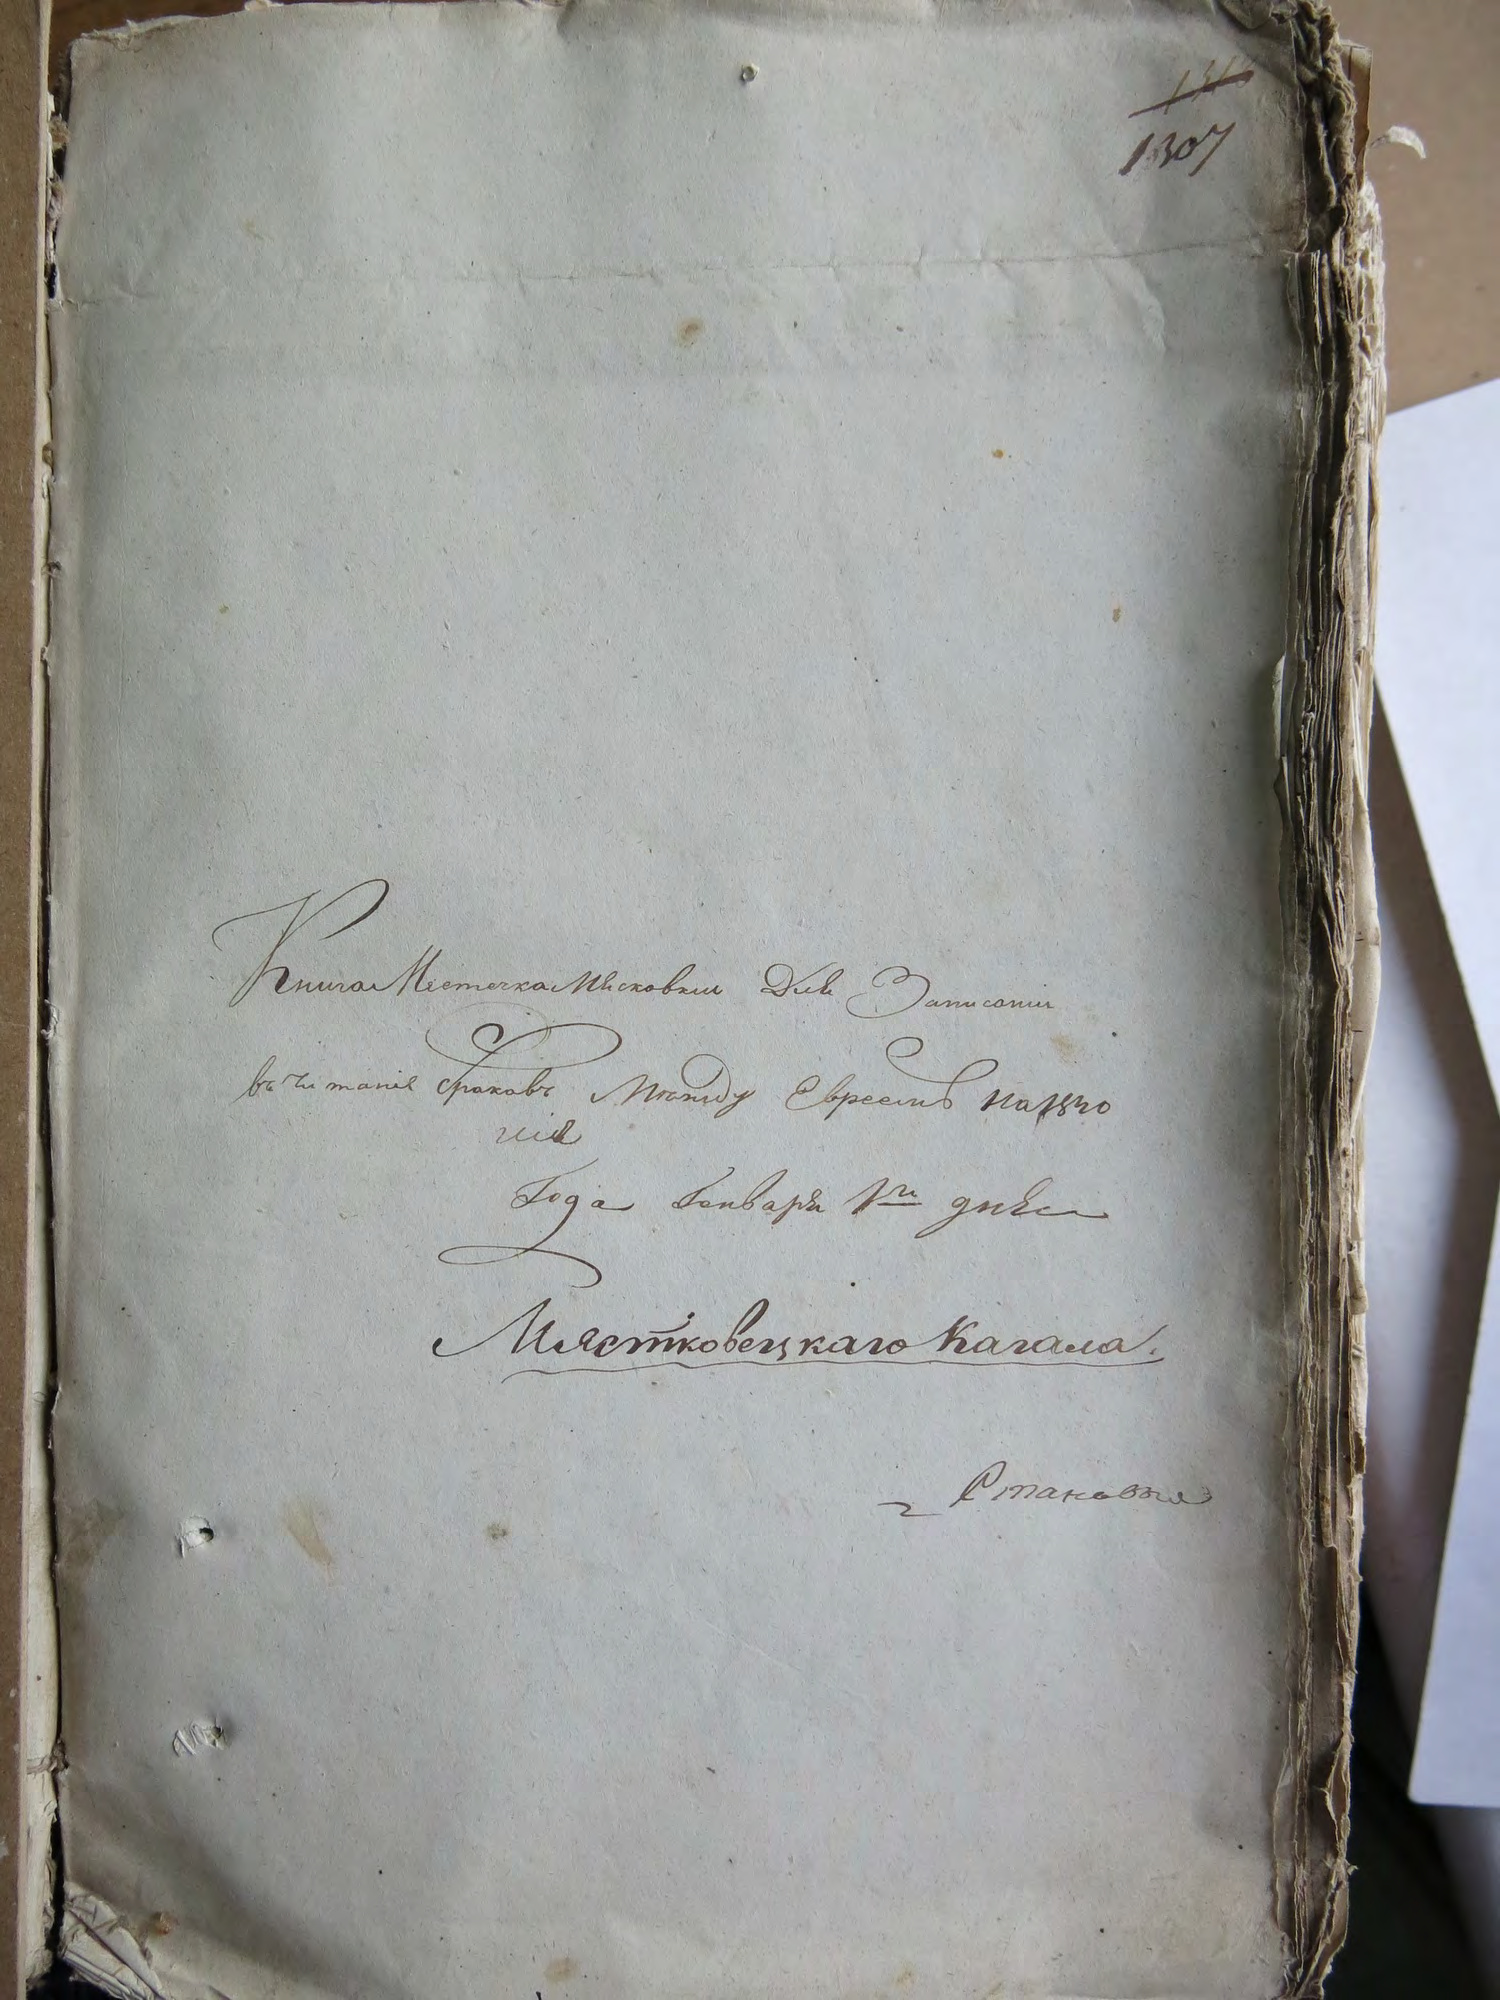 1307
Книга Местечка Мясковки Для Записаніи
вычитанія браковъ Между Евреями на 1840
Года Генваря 1го дня
Мястковецкаго Кагала.